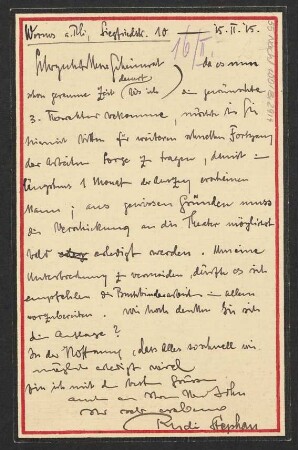 Worms a. Rh., Siegfriedstr. 10   15. II. 15.
16/II.
Sehr geehrter Herr Geheimrat
dauert
da es nun
schon geraume Zeit bis ich die gewünschte
3. Korrektur bekomme, möchte ich Sie
hiermit bitten für weiteren schnellen Fortgang
der Arbeiten Sorge zu tragen, damit in
längstens 1 Monat der Auszug erscheinen
kann; aus gewissen Gründen muss
die Verschickung an die Theater möglichst
bald erledigt werden. Um eine
Unterbrechung zu vermeiden, dürfte es sich
empfehlen die Buchbinderarbeiten in allem
vorzubereiten. Wie hoch denken Sie sich
die Auflage?
In der Hoffnung, dass alles so schnell wie
möglich erledigt wird
bin ich mit den besten Grüssen
auch an Ihren Herrn Sohn
Ihr
Rudi Stephan